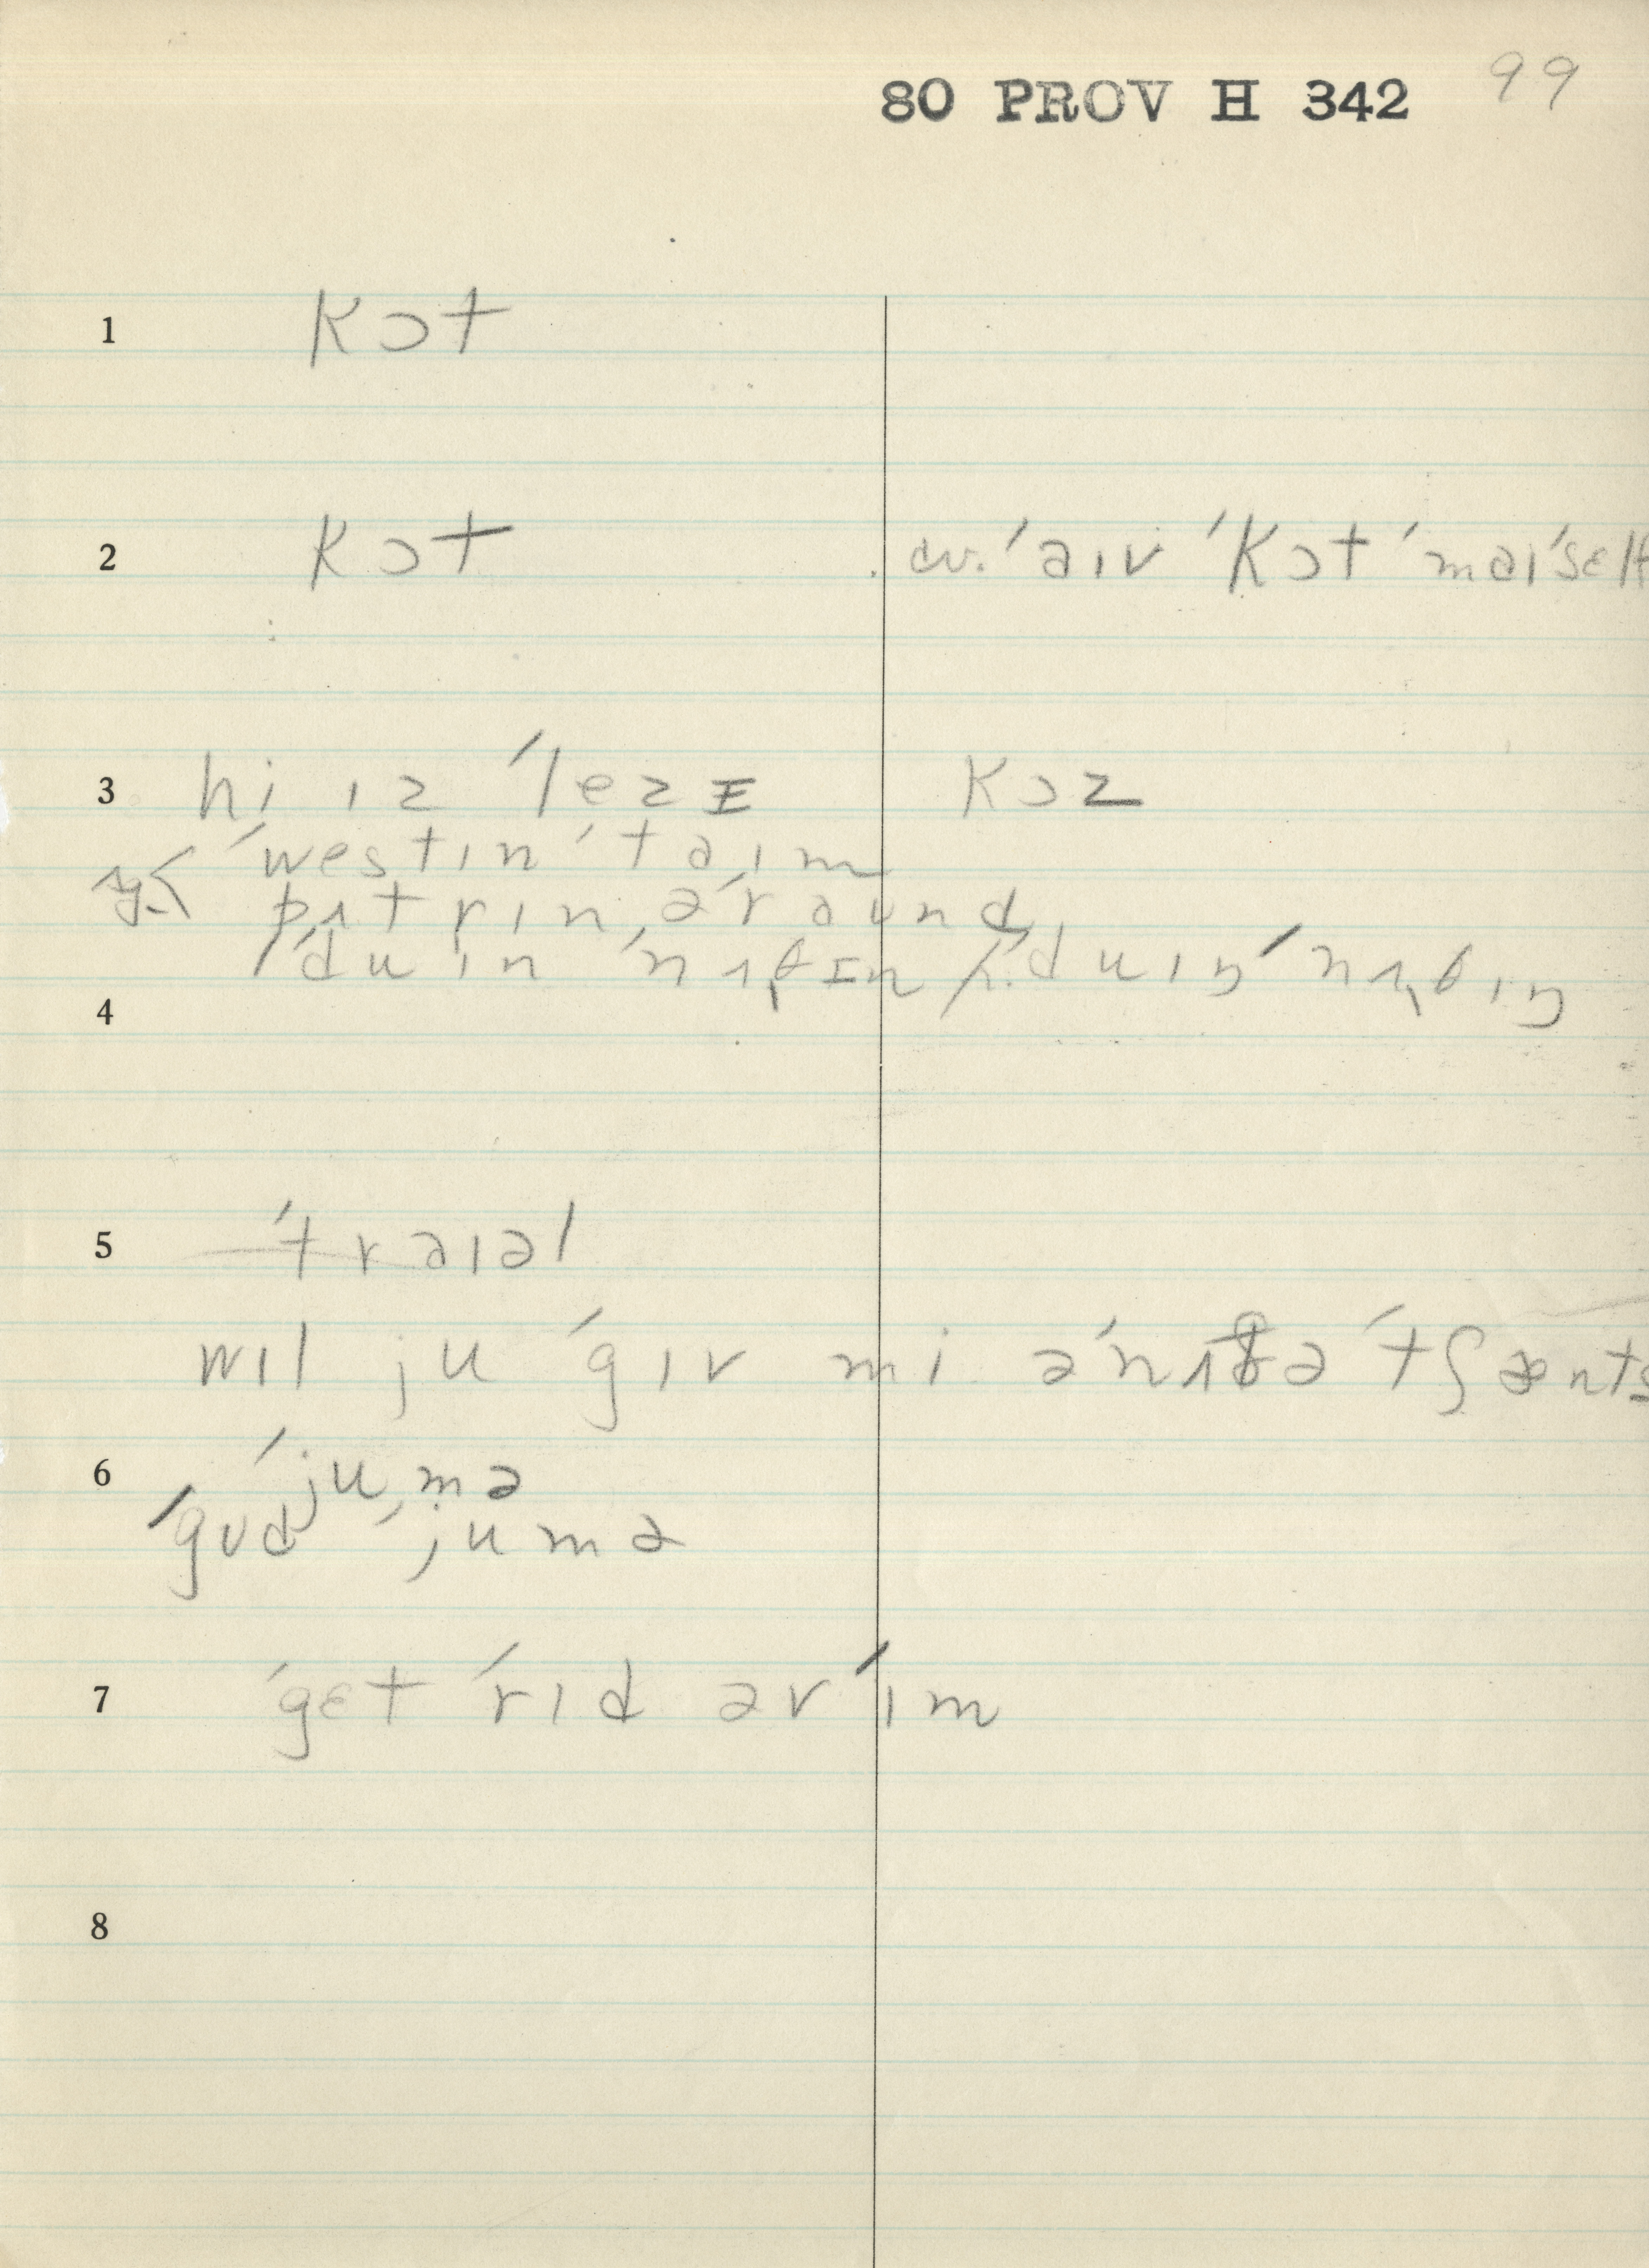 80 PROV H 342 99
1 kɔt
2 kɔt cv. ˈaɪv ˈkɔt ˈmaɪˈself
3 hi ɪz ˈlezɪ kɔz
ˈwestɪn ˈtaɪm
pʌtrɪn əˈraʊnd
ˈduɪn ˈnʌθɪn / ˈduɪŋ ˈnʌθɪŋ
4
5 ˈtraɪəl
wɪl ju ˈgɪv mi əˈnʌðə ˈtʃænts
6 ˈjumə
ˈgʊd ˈjumə
7 ˈget ˈrɪd əv ˈɪm
8